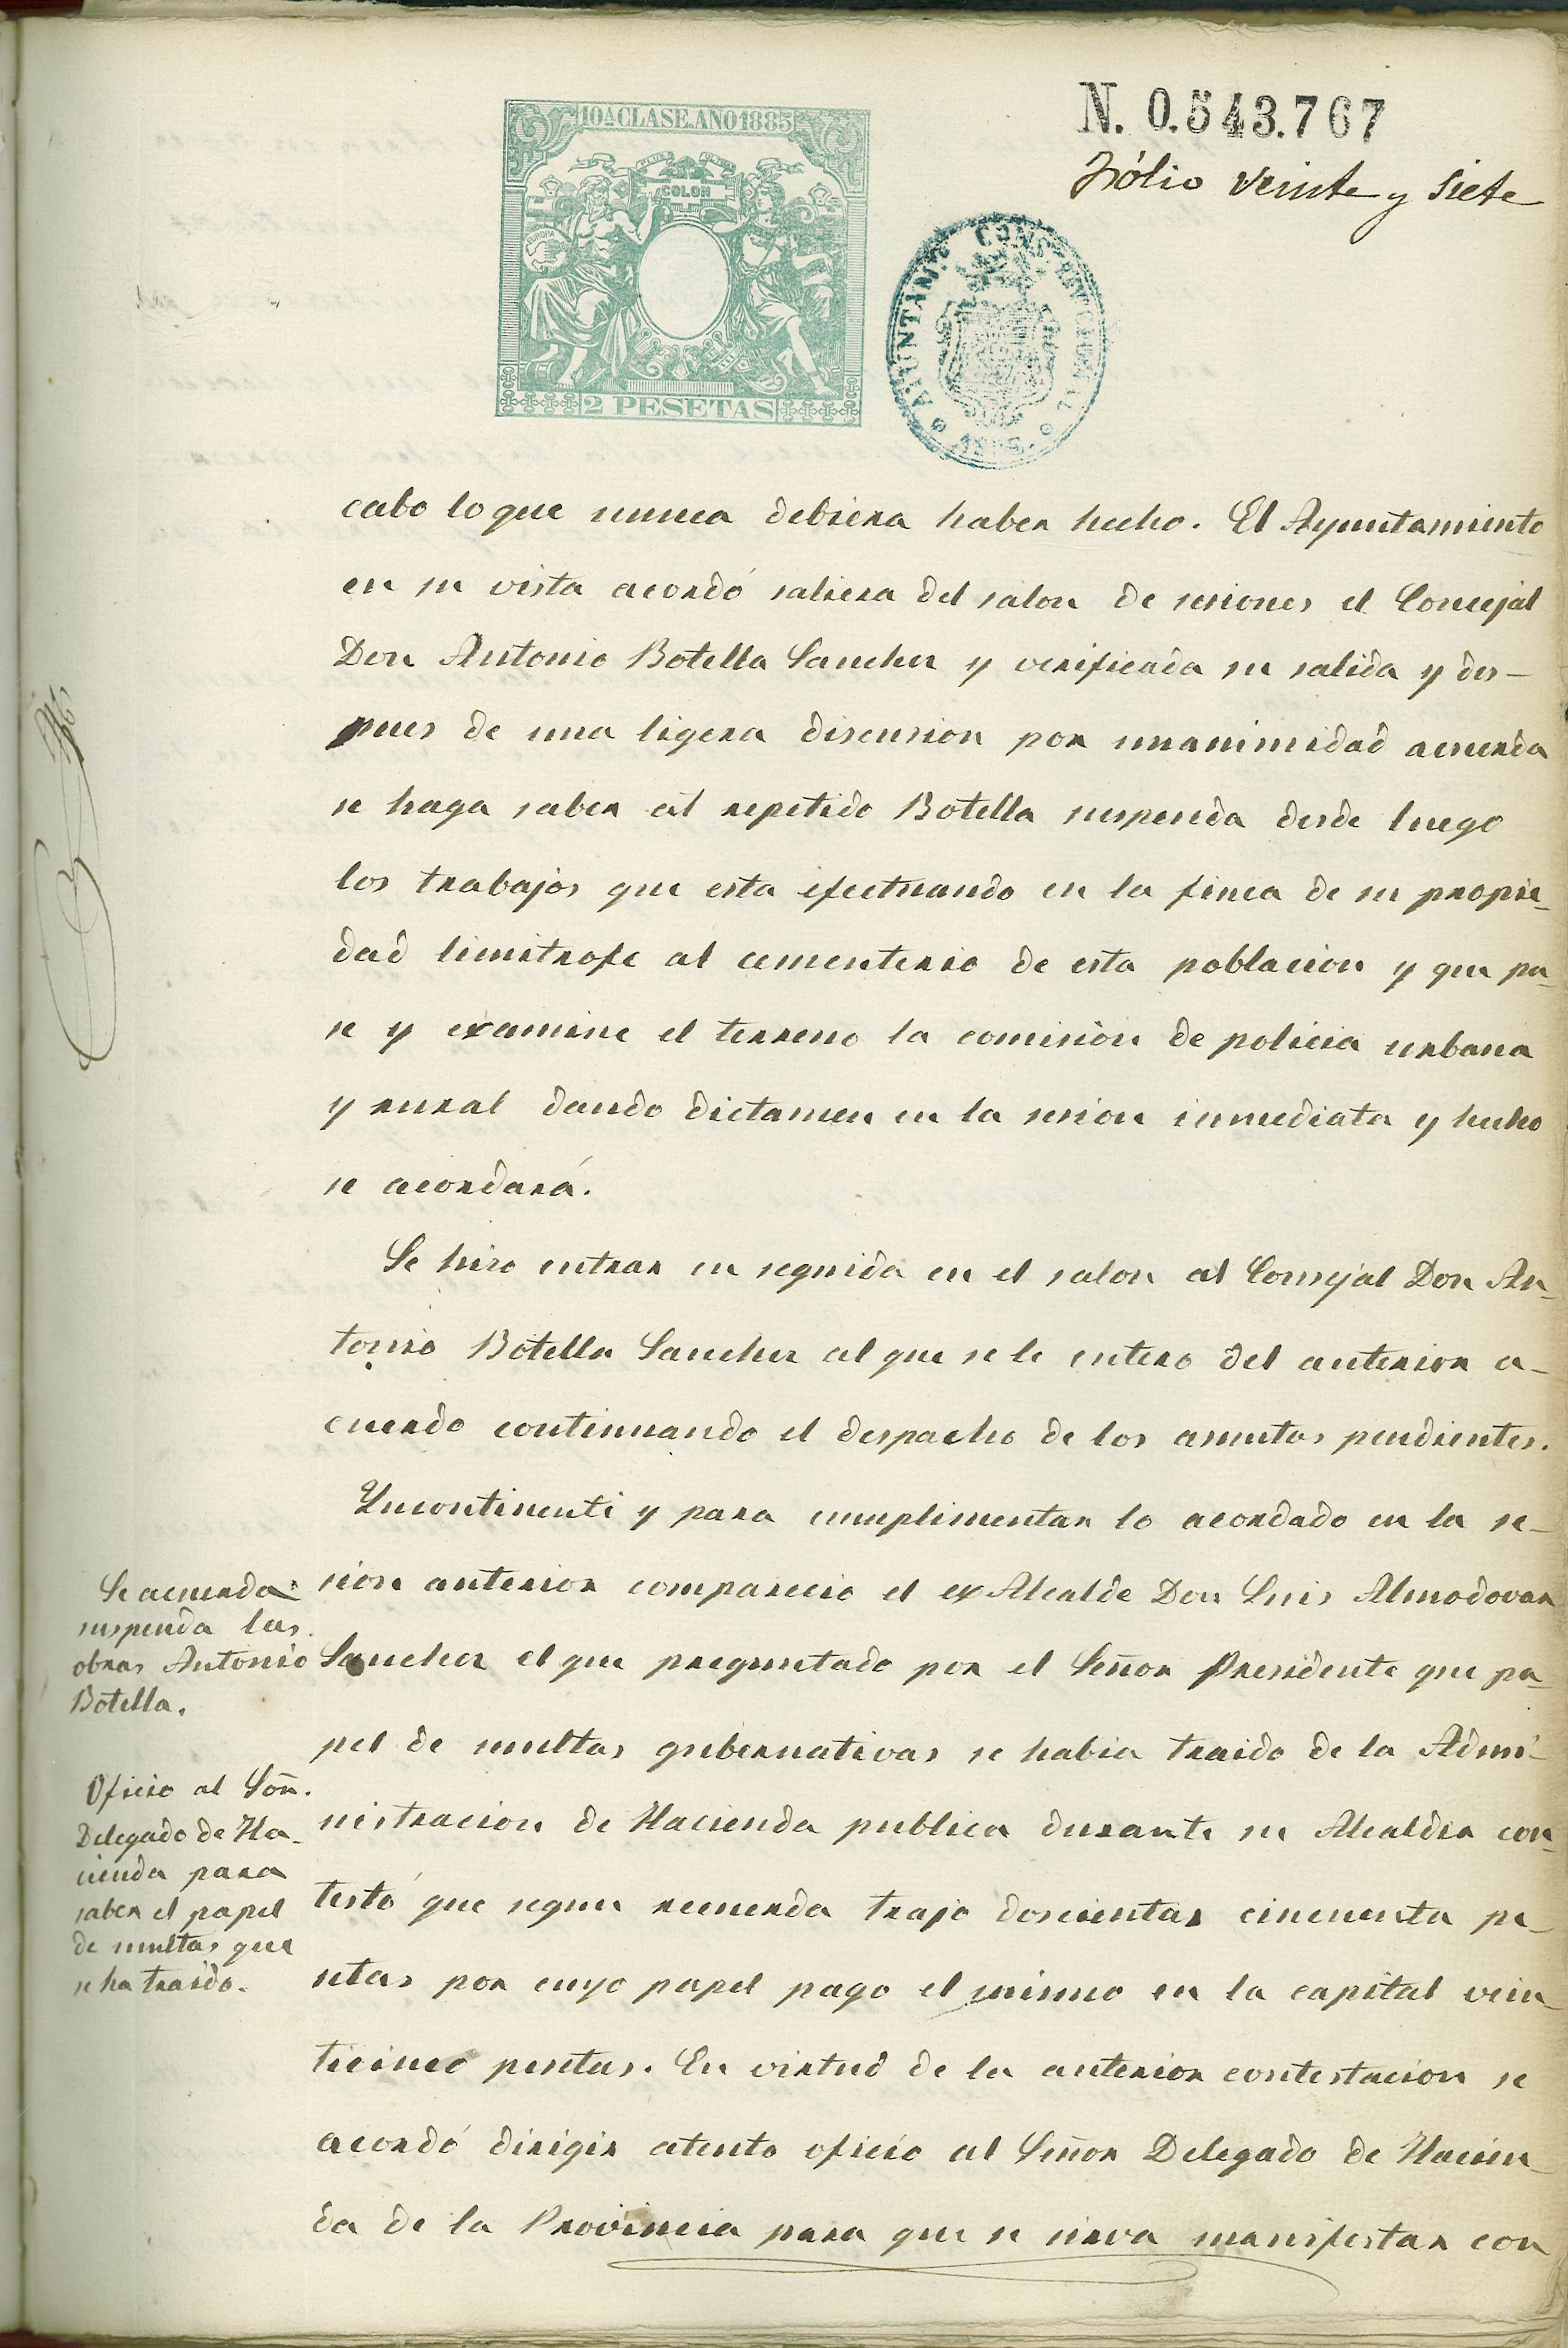 10ª CLASE. AÑO 1885
COLON
EUROPA
2 PESETAS
N. 0.543.767
Fólio veinte y siete
AYUNTAMTO CONSTITUCIONAL
ASPE
cabo lo que nunca debiera haber hecho. El Ayuntamiento
en su vista acordó saliera del salon de sesiones el Concejal
Don Antonio Botella Sanchez y verificada su salida y des-
pues de una ligera discusion por unanimidad acuerda
se haga saber al repetido Botella suspenda desde luego
los trabajos que esta efectuando en la finca de su propie-
dad limitrofe al cementerio de esta poblacion y que pa-
se y examine el terreno la comisión de policia urbana
y rural dando dictamen en la sesion inmediata y hecho
se acordará.
Se hizo entrar en seguida en el salon al Consejal Don An-
tonio Botella Sanchez al que se le entero del anterior a-
cuerdo continuando el despacho de los asuntos pendientes.
Yncontinenti y para cumplimentar lo acordado en la se-
sion anterior comparecio el ex Alcalde Don Luis Almodovar
Sanchez el que preguntado por el Señor Presidente que pa-
pel de multas gubernativas se habia traido de la Admi-
nistracion de Hacienda publica durante su Alcaldia con-
testó que segun recuerda trajo doscientas cincuenta pe-
setas por cuyo papel pago el mismo en la capital vein-
ticinco pesetas. En virtud de la anterior contestacion se
acordó dirigir atento oficio al Señor Delegado de Hacien-
da de la Provincia para que se sirva manifestar con
Se acuerda
suspenda las
obras Antonio
Botella.
Oficio al Soñ.
Delegado de Ha-
cienda para
saber el papel
de multas que
se ha traido.